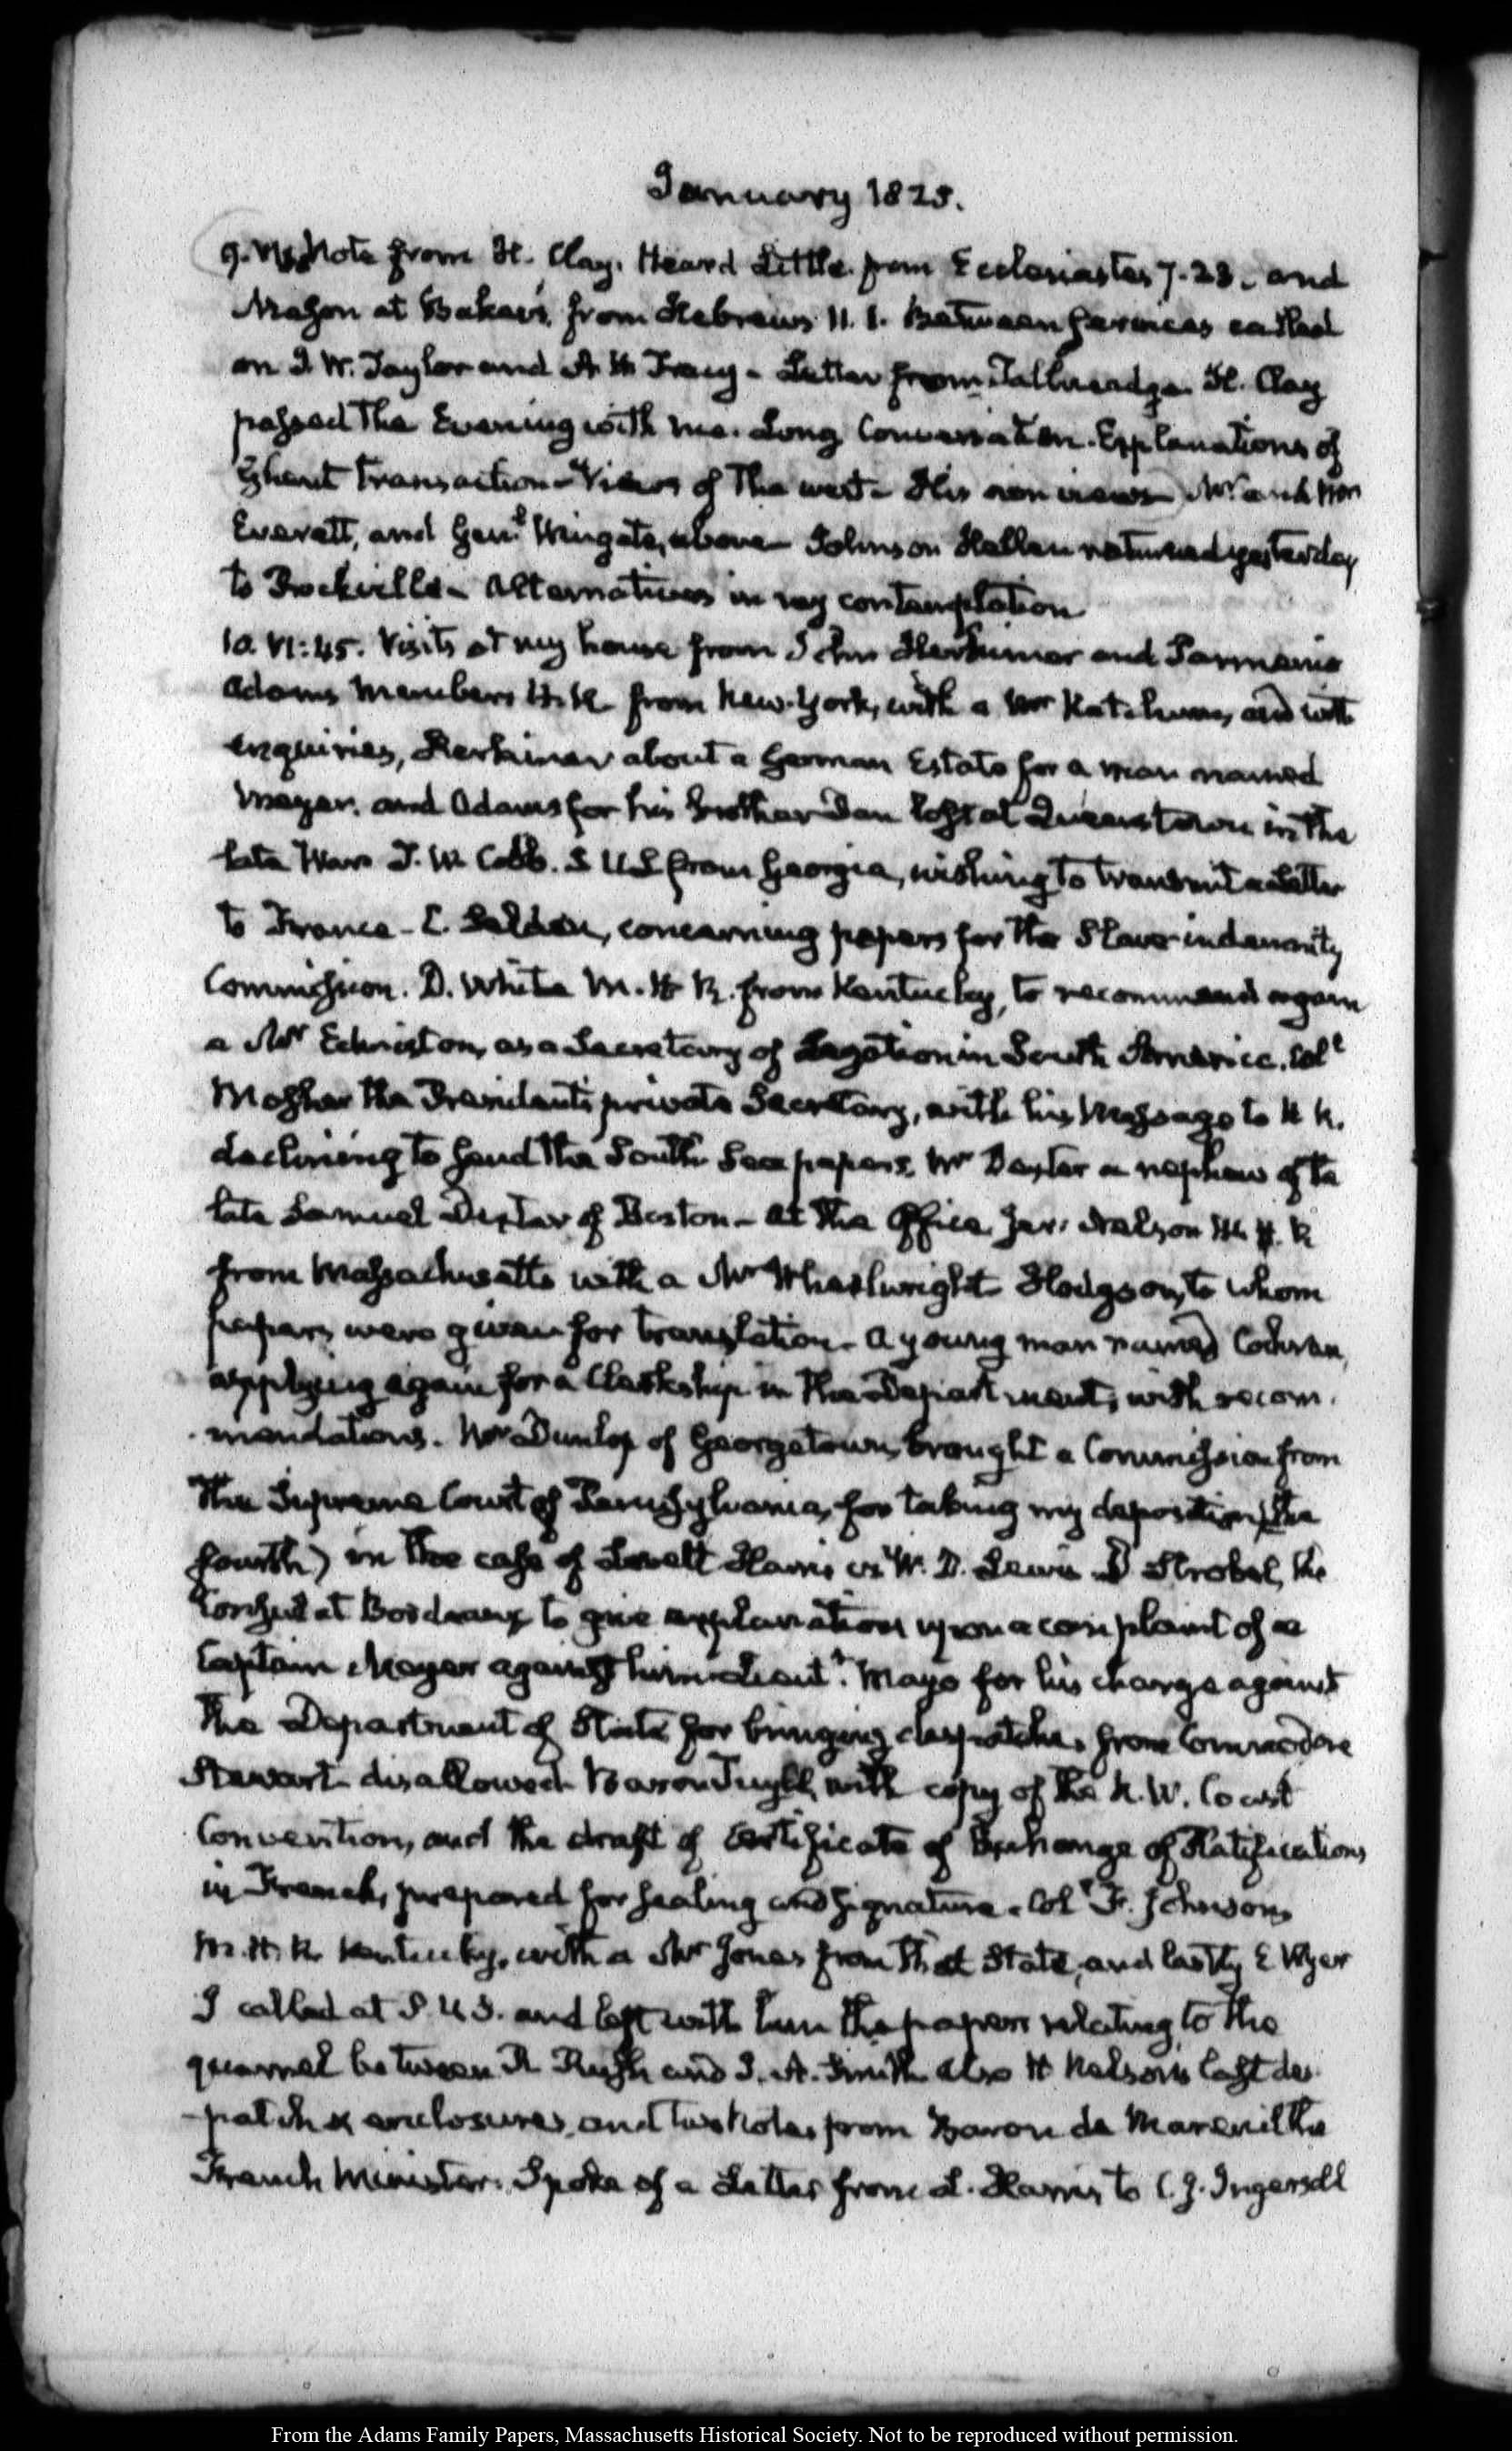 January 1825.
9. VI. Note from H. Clay. Heard Little from Ecclesiastes 7. 23. and
Mason at Baker's from Hebrews 11. 1. Between services called
on J. W. Taylor and A. H. Tracy — Letter from Tallmadge. H. Clay
passed the Evening with me. Long Conversation. Explanations of
Ghent transaction — Views of the west — His own views — Mr and Mrs
Everett, and Genl. Wingate, above — Johnson Hellen returned yesterday
to Rockville — Alternatives in my contemplation
10. VI:45. Visits at my house from John Herkimer and Parmenio
Adams Members H. R. from New-York, with a Mr Ketchum, and with
enquiries, Herkimer about a German Estate for a man named
Meyer. and Adams for his brother Dan lost at Queenstown in the
late War. T. W. Cobb. S U S from Georgia, wishing to transmit a letter
to France — C. Selden, concerning papers for the Slave indemnity
Commission. D. White M. H. R. from Kentucky, to recommend again
a Mr as a Secretary of Legation in South America. Coll
the President's private Secretary, with his Message to H R.
declining to send the South Sea papers. Mr Dexter a nephew of the
late Samuel Dexter of Boston — At the Office Jer: Nelson M. H. R
from Massachusetts with a Mr Wheelwright Hodgson, to whom
papers were given for translation — A young man named Cochran,
applying again for a Clerkship in the Department, with recom-
mendations. Mr Dunlop of Georgetown, brought a Commission from
the Supreme Court of Pennsylvania, for taking my deposition (the
fourth) in the case of Levett Harris vs W. D. Lewis. D Strobel, the
Consul at Bordeaux to give explanations upon a complaint of a
Captain Meyer against him. Lieutt. Mayo for his charge against
the Department of State for bringing despatches from Commodore
Stewart — disallowed — Baron Tuyll, with copy of the N. W. Coast
Convention, and the draft of Certificate of Exchange of Ratifications
in French, prepared for sealing and signature. Col F. Johnson,
M. H. R. Kentucky, with a Mr Jones from that State, and lastly E Wyer
I called at P. U. S. and left with him the papers relating to the
quarrel between R Rush and J. A. Smith also H Nelson's last des-
-patch & enclosures, and two Notes from Baron de Mareuil the
French Minister. Spoke of a Letter from L. Harris to C. J. Ingersoll
From the Adams Family Papers, Massachusetts Historical Society. Not to be reproduced without permission.